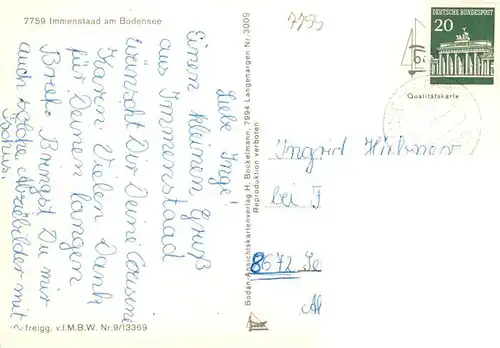 7759 Immenstaad am Bodensee
7755
DEUTSCHE BUNDESPOST
20
Qualitätskarte
Liebe Inge!
Einen kleinen Gruß
aus Immenstaad
wünscht Dir Deine Cousine
Karin. Vielen Dank
für Deinen langen
Brief. Bringst Du mir
auch solche Abziehbilder mit
Tschüs.
Bodan-Ansichtskartenverlag H. Bockelmann, 7994 Langenargen Nr. 3009
Reproduktion verboten
Ingrid Hübner
bei F
8672 Se
Al
freigg. v. I.M.B.W. Nr. 9/13369